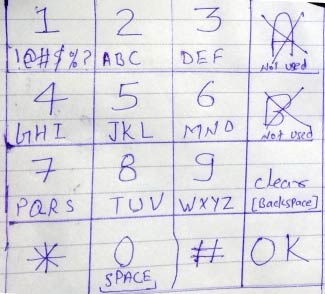 1 2 3 A
!@#$%? ABC DEF Not used
4 5 6 B
GHI JKL MNO Not used
7 8 9 clear
PQRS TUV WXYZ [Backspace]
* 0 # OK
[SPACE]